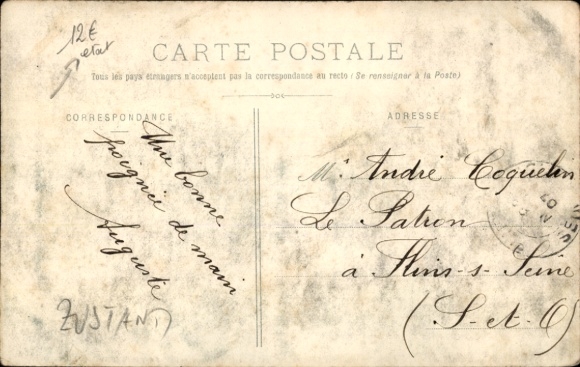 12€
etat
CARTE POSTALE
Tous les pays étrangers n'acceptent pas la correspondance au recto (Se renseigner à la Poste)
CORRESPONDANCE
Une bonne
poignée de main
Auguste
ZUSTAND
ADRESSE
Mr André Coquelin
Le Patron
à Flins-s-Seine
(S-et-O)